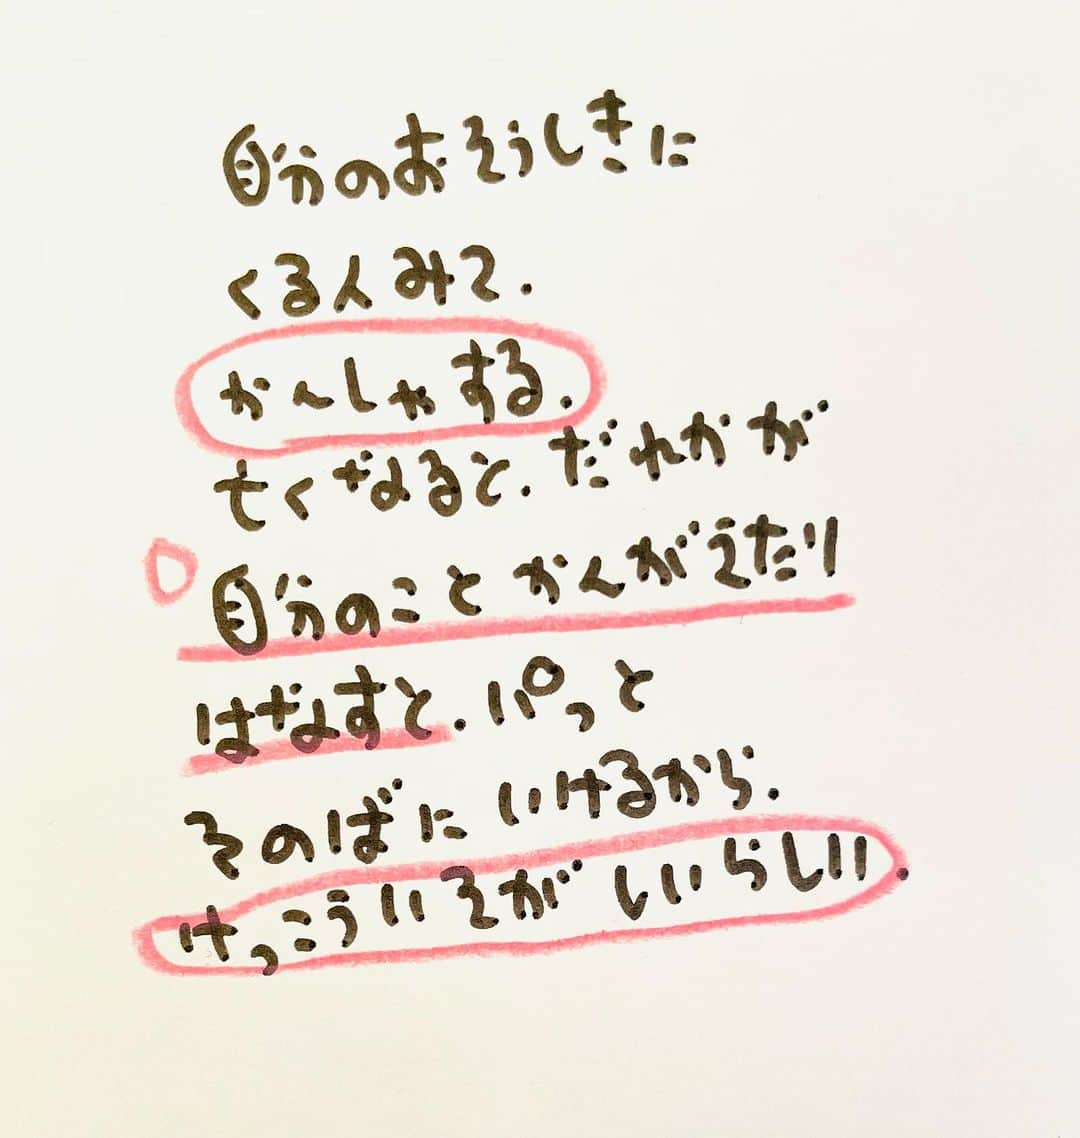 自分のおそうしきに
くる人みて.
かんしゃする.
亡くなると.だれかが
自分のことかんがえたり
はなすと.パっと
そのばにいけるから.
けっこういそがしいらしい.